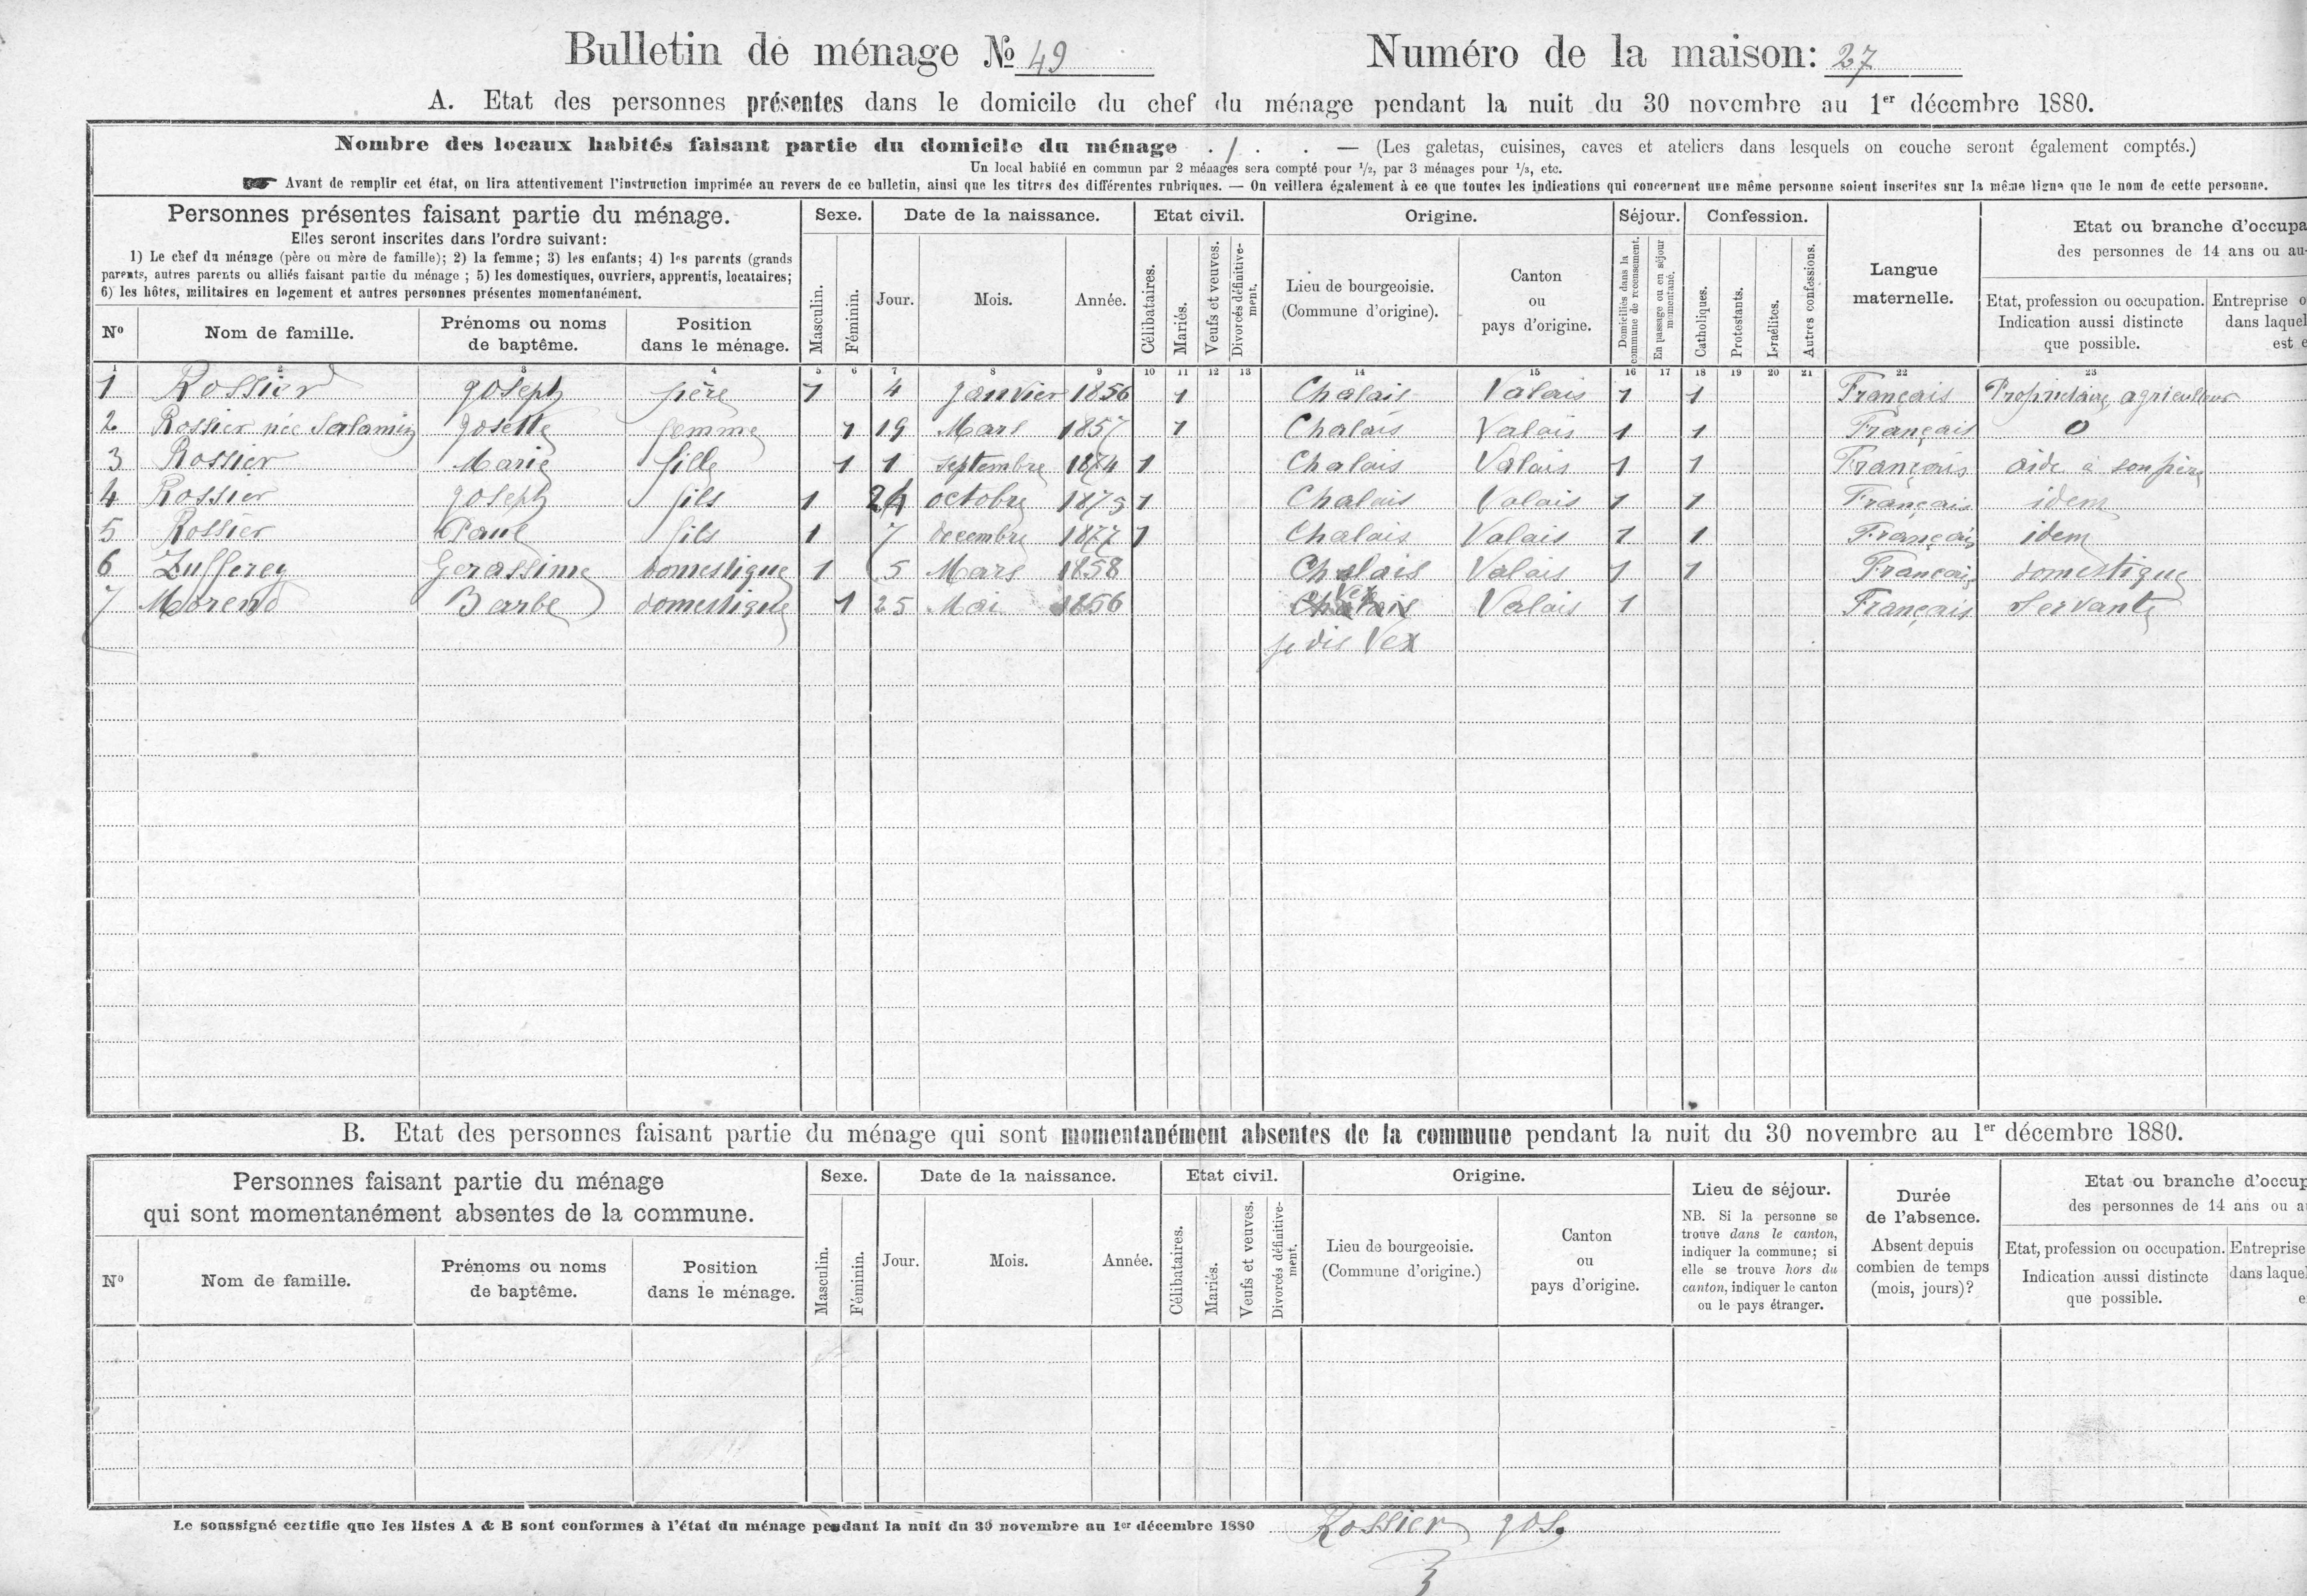 Bulletin de ménage № 49 Numéro de la maison: 27
A. Etat des personnes présentes dans le domicile du chef du ménage pendant la nuit du 30 novembre au 1er décembre 1880.
Nombre des locaux habités faisant partie du domicile du ménage . 1 . . — (Les galetas, cuisines, caves et ateliers dans lesquels on couche seront également comptés.)
Un local habité en commun par 2 ménages sera compté pour 1/2, par 3 ménages pour 1/3, etc.
☛ Avant de remplir cet état, on lira attentivement l'instruction imprimée au revers de ce bulletin, ainsi que les titres des différentes rubriques. — On veillera également à ce que toutes les indications qui concernent une même personne soient inscrites sur la même ligne que le nom de cette personne.
Personnes présentes faisant partie du ménage.
Elles seront inscrites dans l'ordre suivant:
1) Le chef du ménage (père ou mère de famille); 2) la femme; 3) les enfants; 4) les parents (grands
parents, autres parents ou alliés faisant partie du ménage ; 5) les domestiques, ouvriers, apprentis, locataires;
6) les hôtes, militaires en logement et autres personnes présentes momentanément.
Nº Nom de famille. Prénoms ou noms de baptême. Position dans le ménage.
Sexe. Masculin. Féminin.
Date de la naissance. Jour. Mois. Année.
Etat civil. Célibataires. Mariés. Veufs et veuves. Divorcés définitive-ment.
Origine. Lieu de bourgeoisie. (Commune d'origine). Canton ou pays d'origine.
Séjour. Domiciliés dans la commune de recensement. En passage ou en séjour momentané.
Confession. Catholiques. Protestants. Israélites. Autres confessions.
Langue maternelle.
Etat ou branche d'occupa
des personnes de 14 ans ou au-
Etat, profession ou occupation. Indication aussi distincte que possible.
Entreprise o
dans laquel
est e
1 2 3 4 5 6 7 8 9 10 11 12 13 14 15 16 17 18 19 20 21 22 23
1 Rossier Joseph père 1 4 Janvier 1856 1 Chalais Valais 1 1 Français Propriétaire agriculteur
2 Rossier née Salamin Josette femme 1 19 Mars 1857 1 Chalais Valais 1 1 Français 0
3 Rossier Marie fille 1 1 septembre 1874 1 Chalais Valais 1 1 Français aide à son père
4 Rossier Joseph fils 1 24 octobre 1875 1 Chalais Valais 1 1 Français idem
5 Rossier Paul fils 1 7 decembre 1877 1 Chalais Valais 1 1 Français idem
6 Zufferey Gerassime domestique 1 5 Mars 1858 Chalais Valais 1 1 Français domestique
7 Moreno Barbe domestique 1 25 Mai 1856 Chalais Vex Valais 1 Français servante
je dis Vex
B. Etat des personnes faisant partie du ménage qui sont momentanément absentes de la commune pendant la nuit du 30 novembre au 1er décembre 1880.
Personnes faisant partie du ménage
qui sont momentanément absentes de la commune.
Nº Nom de famille. Prénoms ou noms de baptême. Position dans le ménage.
Sexe. Masculin. Féminin.
Date de la naissance. Jour. Mois. Année.
Etat civil. Célibataires. Mariés. Veufs et veuves. Divorcés définitive-ment.
Origine. Lieu de bourgeoisie. (Commune d'origine.) Canton ou pays d'origine.
Lieu de séjour.
NB. Si la personne se
trouve dans le canton,
indiquer la commune; si
elle se trouve hors du
canton, indiquer le canton
ou le pays étranger.
Durée
de l'absence.
Absent depuis
combien de temps
(mois, jours)?
Etat ou branche d'occup
des personnes de 14 ans ou a
Etat, profession ou occupation. Indication aussi distincte que possible.
Entreprise
dans laque
e
Le soussigné certifie que les listes A & B sont conformes à l'état du ménage pendant la nuit du 30 novembre au 1er décembre 1880 Rossier Jos.
3